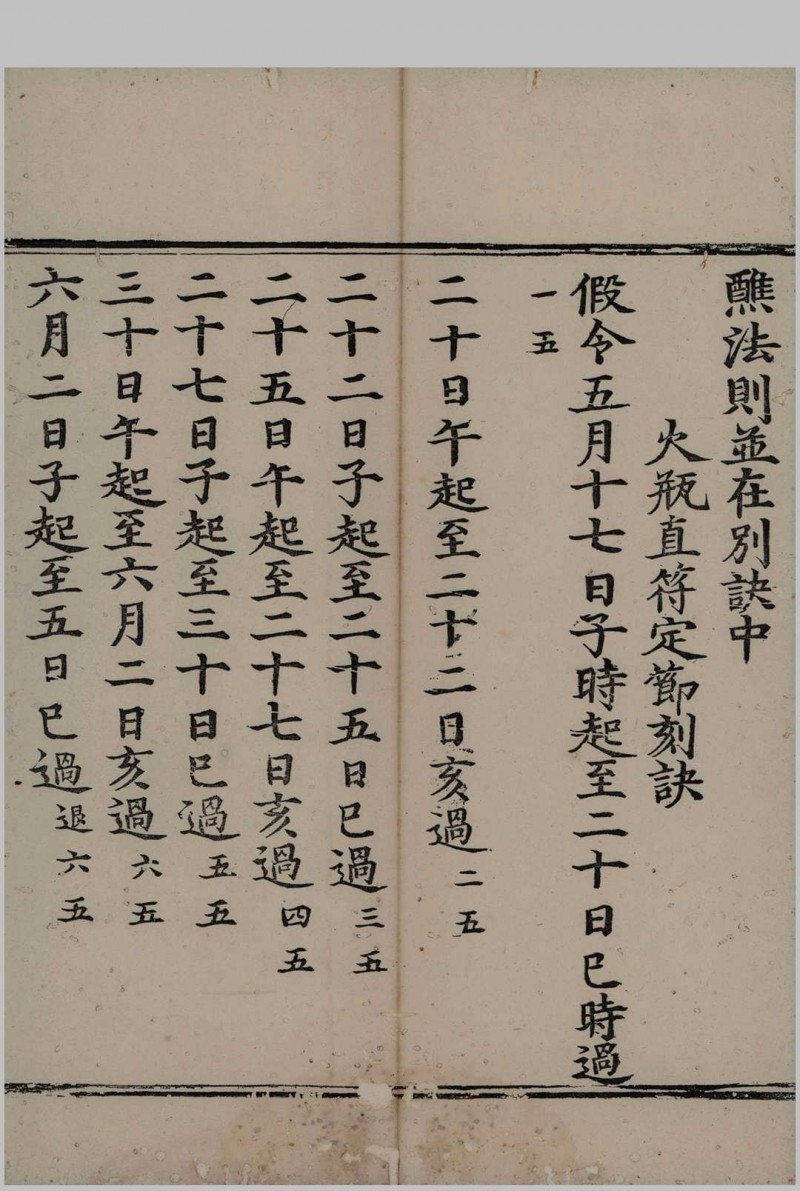 醮法則並在別訣中
火瓶直符定節刻訣
假令五月十七日子時起至二十日巳時過
一五
二十日午起至二十二日亥過二五
二十二日子起至二十五日巳過三五
二十五日午起至二十七日亥過四五
二十七日子起至三十日巳過五五
三十日午起至六月二日亥過六五
六月二日子起至五日巳過退六五